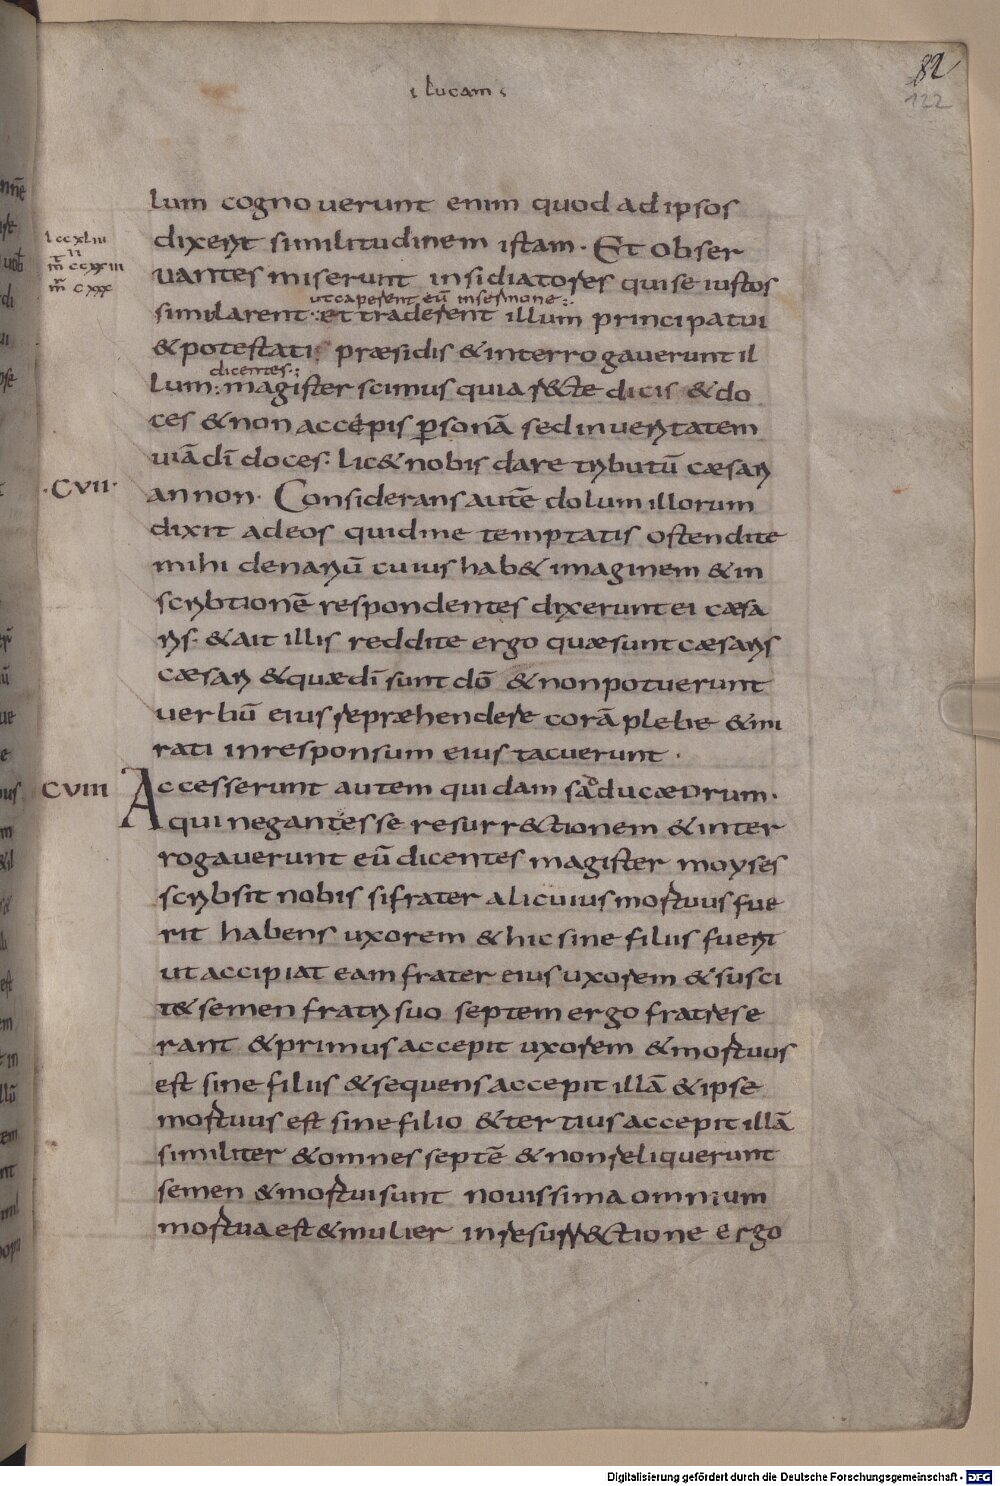 lucam
82
122
lum cognouerunt enim quod ad ipsos
lccxliii
dixerīt similitudinem istam. Et obser
ii
m̄ ccxxiii
uantes miserunt insidiatores qui se iustos
m̄ cxxx
ut caperent eū in sermone:
similarent: et traderent illum principatui
& potestati: præsidis & interrogauerunt il
dicentes:
lum: magister scimus quia r&te dicis & do
ces & non accepis ꝑsonā sed in ueritatem
uiā dī doces. lic& nobis dare tributū cæsari
.CVII. an non. Considerans autē dolum illorum
dixit ad eos quid me temptatis ostendite
mihi denariū cuius hab& imaginem & in
scribtionē respondentes dixerunt ei cæsa
ris. & ait illis reddite ergo quæ sunt cæsaris
cæsari & quæ dī sunt dō & non potuerunt
uerbū eius repræhendere corā plebe & mi
rati in responsum eius tacuerunt.
CVIII Accesserunt autem quidam saducæorum.
qui negant esse resurr&tionem & inter
rogauerunt eū dicentes magister moyses
scribsit nobis si frater alicuius mortuus fue
rit habens uxorem & hic sine filiis fuerit
ut accipiat eam frater eius uxorem & susci
t& semen fratri suo septem ergo fratres e
rant & primus accepit uxorem & mortuus
est sine filiis & sequens accepit illā & ipse
mortuus est sine filio & tertius accepit illā
similiter & omnes septē & non reliquerunt
semen & mortui sunt nouissima omnium
mortua est & mulier in resurr&tione ergo
Digitalisierung gefördert durch die Deutsche Forschungsgemeinschaft - DFG